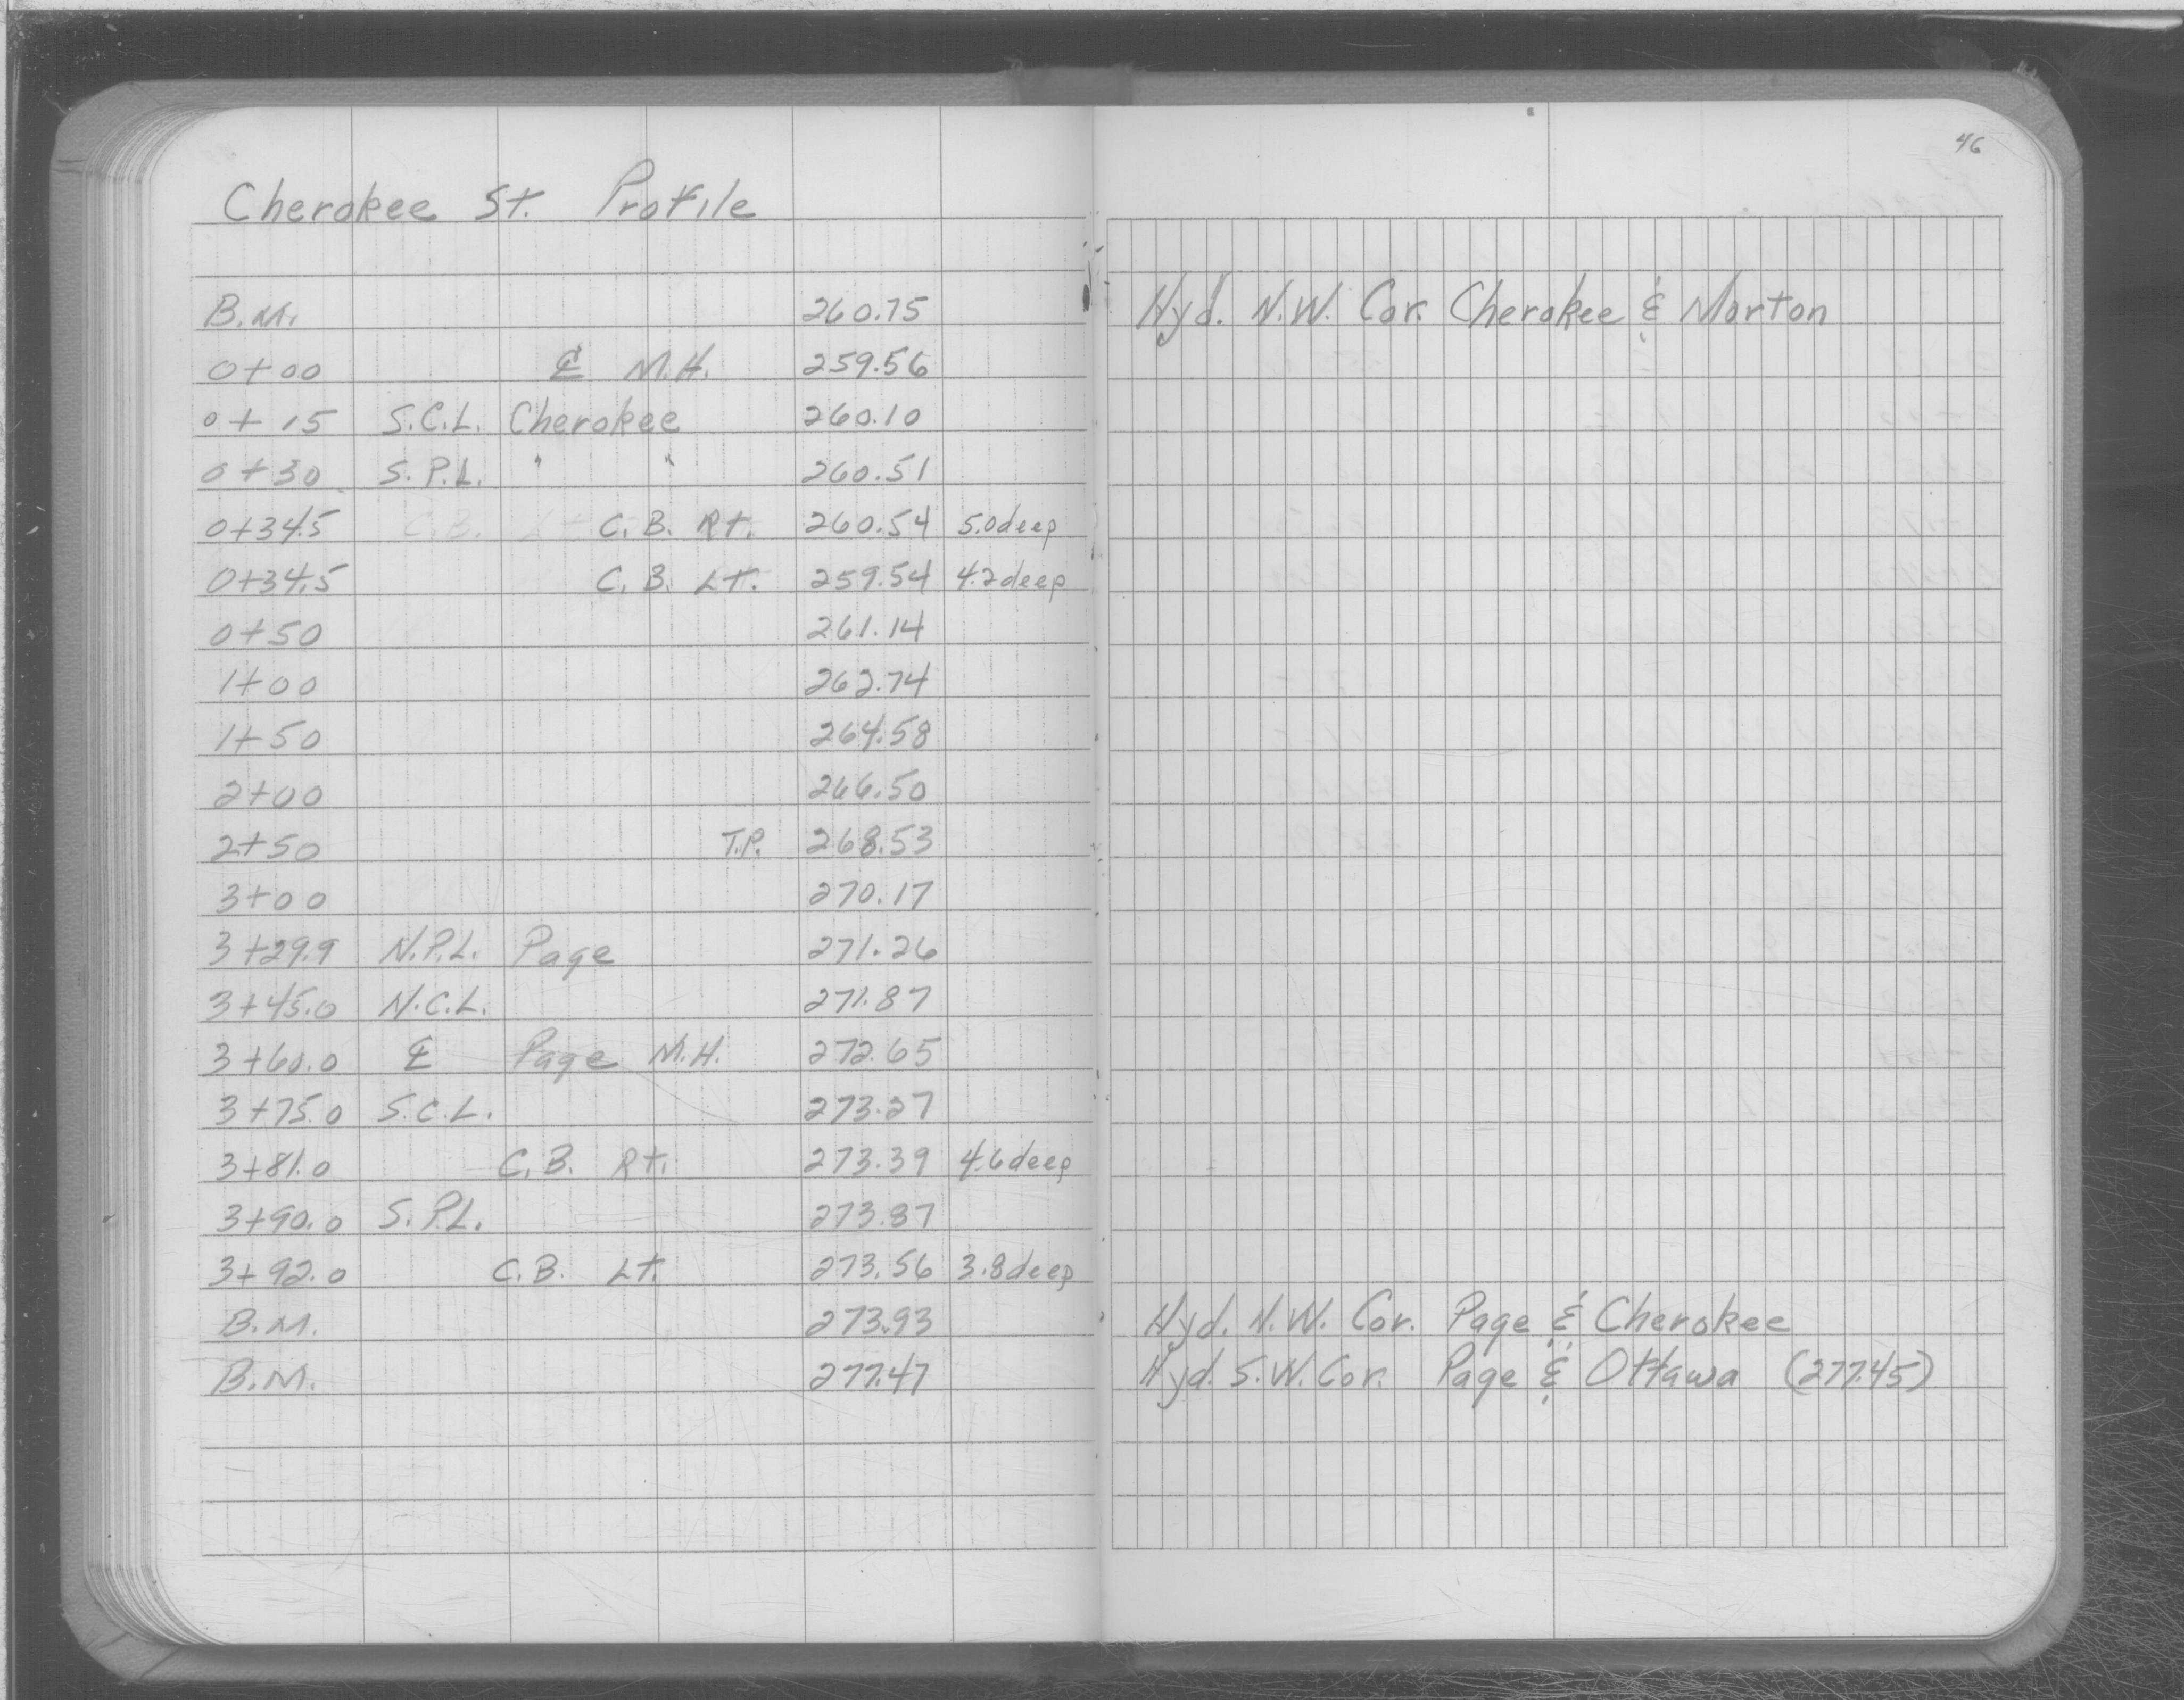 46
Cherokee St. Profile
B.M. 260.75 Hyd. N.W. Cor. Cherokee & Morton
0+00 ℄ M.H. 259.56
0+15 S.C.L. Cherokee 260.10
0+30 S.P.L. " " 260.51
0+34.5 C.B. Lt C.B. Rt. 260.54 5.0deep
0+34.5 C.B. Lt. 259.54 4.2deep
0+50 261.14
1+00 262.74
1+50 264.58
2+00 266.50
2+50 T.P. 268.53
3+00 270.17
3+29.9 N.P.L. Page 271.26
3+45.0 N.C.L. 271.87
3+60.0 ℄ Page M.H. 272.65
3+75.0 S.C.L. 273.27
3+81.0 C.B. Rt. 273.39 4.6deep
3+90.0 S.P.L. 273.87
3+92.0 C.B. Lt. 273.56 3.8deep
B.M. 273.93 Hyd. N.W. Cor. Page & Cherokee
B.M. 277.47 Hyd. S.W. Cor. Page & Ottawa (277.45)